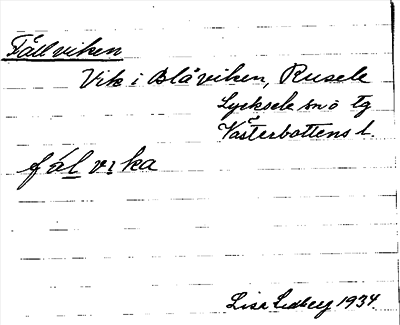 Fällviken
Vik i Blåviken, Rusele
Lycksele sn o tg
Västerbottens l.
fál vika
Lisa Lidberg 1934